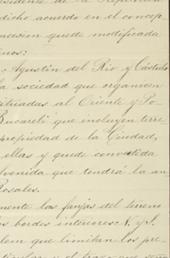 dicho acuerdo en el concep
cession quede modificada
nos:
Agustin del Rio y Cástulo
la sociedad que organicen
situadas al Oriente y Po
Bucareli que incluyen terre
propiedad de la Ciudad,
ellas y quede convertida
avenida que tendrá la an
Rosales.
mente las fanjas del terreno
los bordes interiores
que limitan los pre